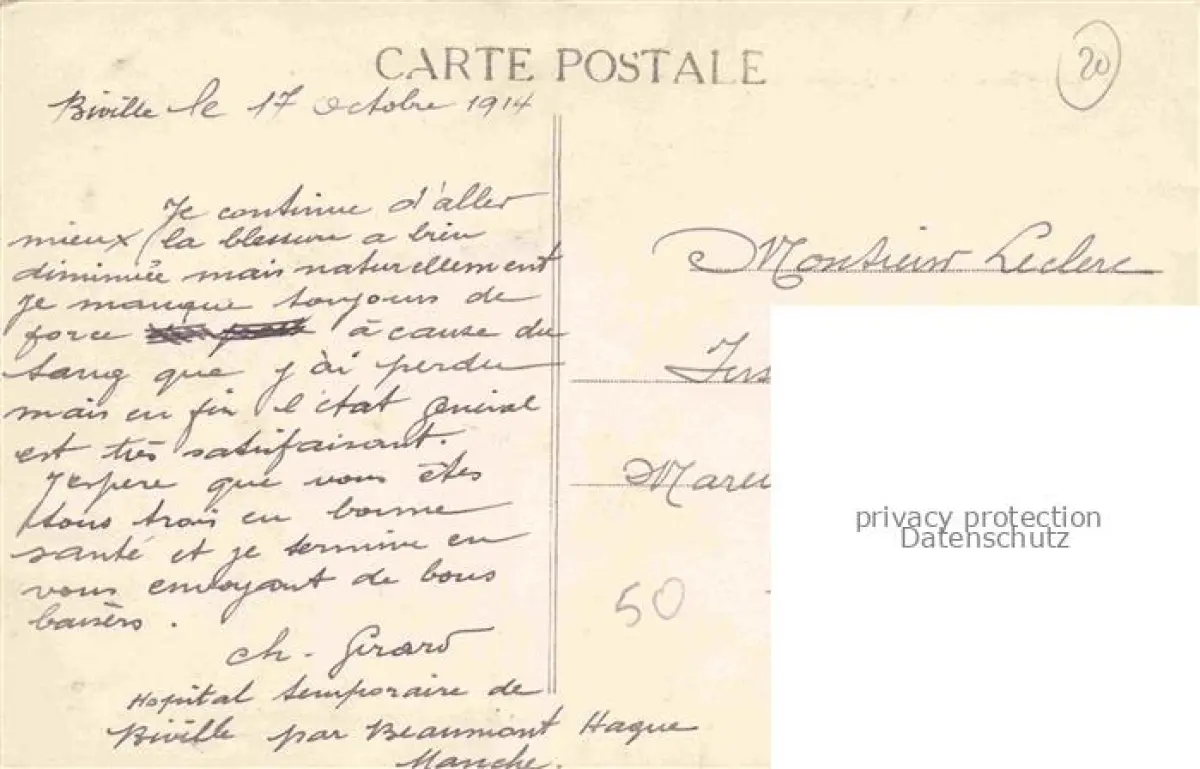 CARTE POSTALE
20
Biville le 17 Octobre 1914
Je continue d'aller
mieux la blessure a bien
diminuée mais naturellement
je manque toujours de
force à cause du
sang que j'ai perdu
mais en fin l'état général
est très satisfaisant.
J'espere que vous êtes
tous trois en bonne
santé et je termine en
vous envoyant de bons
baisers.
Ch. Girard
Hopital temporaire de
Biville par Beaumont Hague
Manche.
Monsieur Leclerc
50
privacy protection
Datenschutz